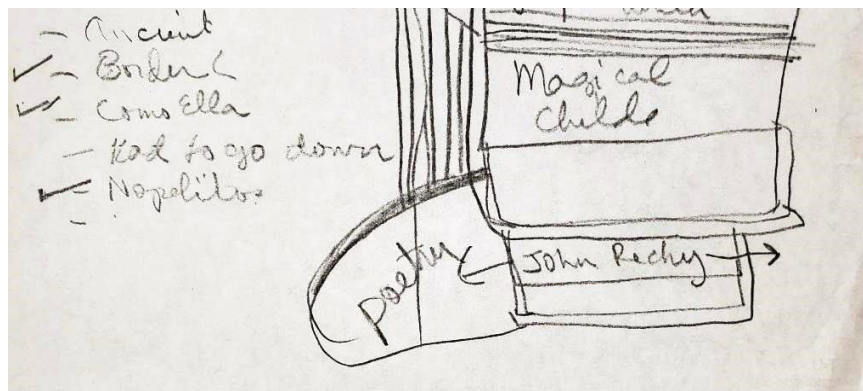 - Ancient
✓ - Border C
✓ - Como Ella
- Had to go down
✓ - Nopalitos
-
Magical
Childe
Poetry
John Rechy